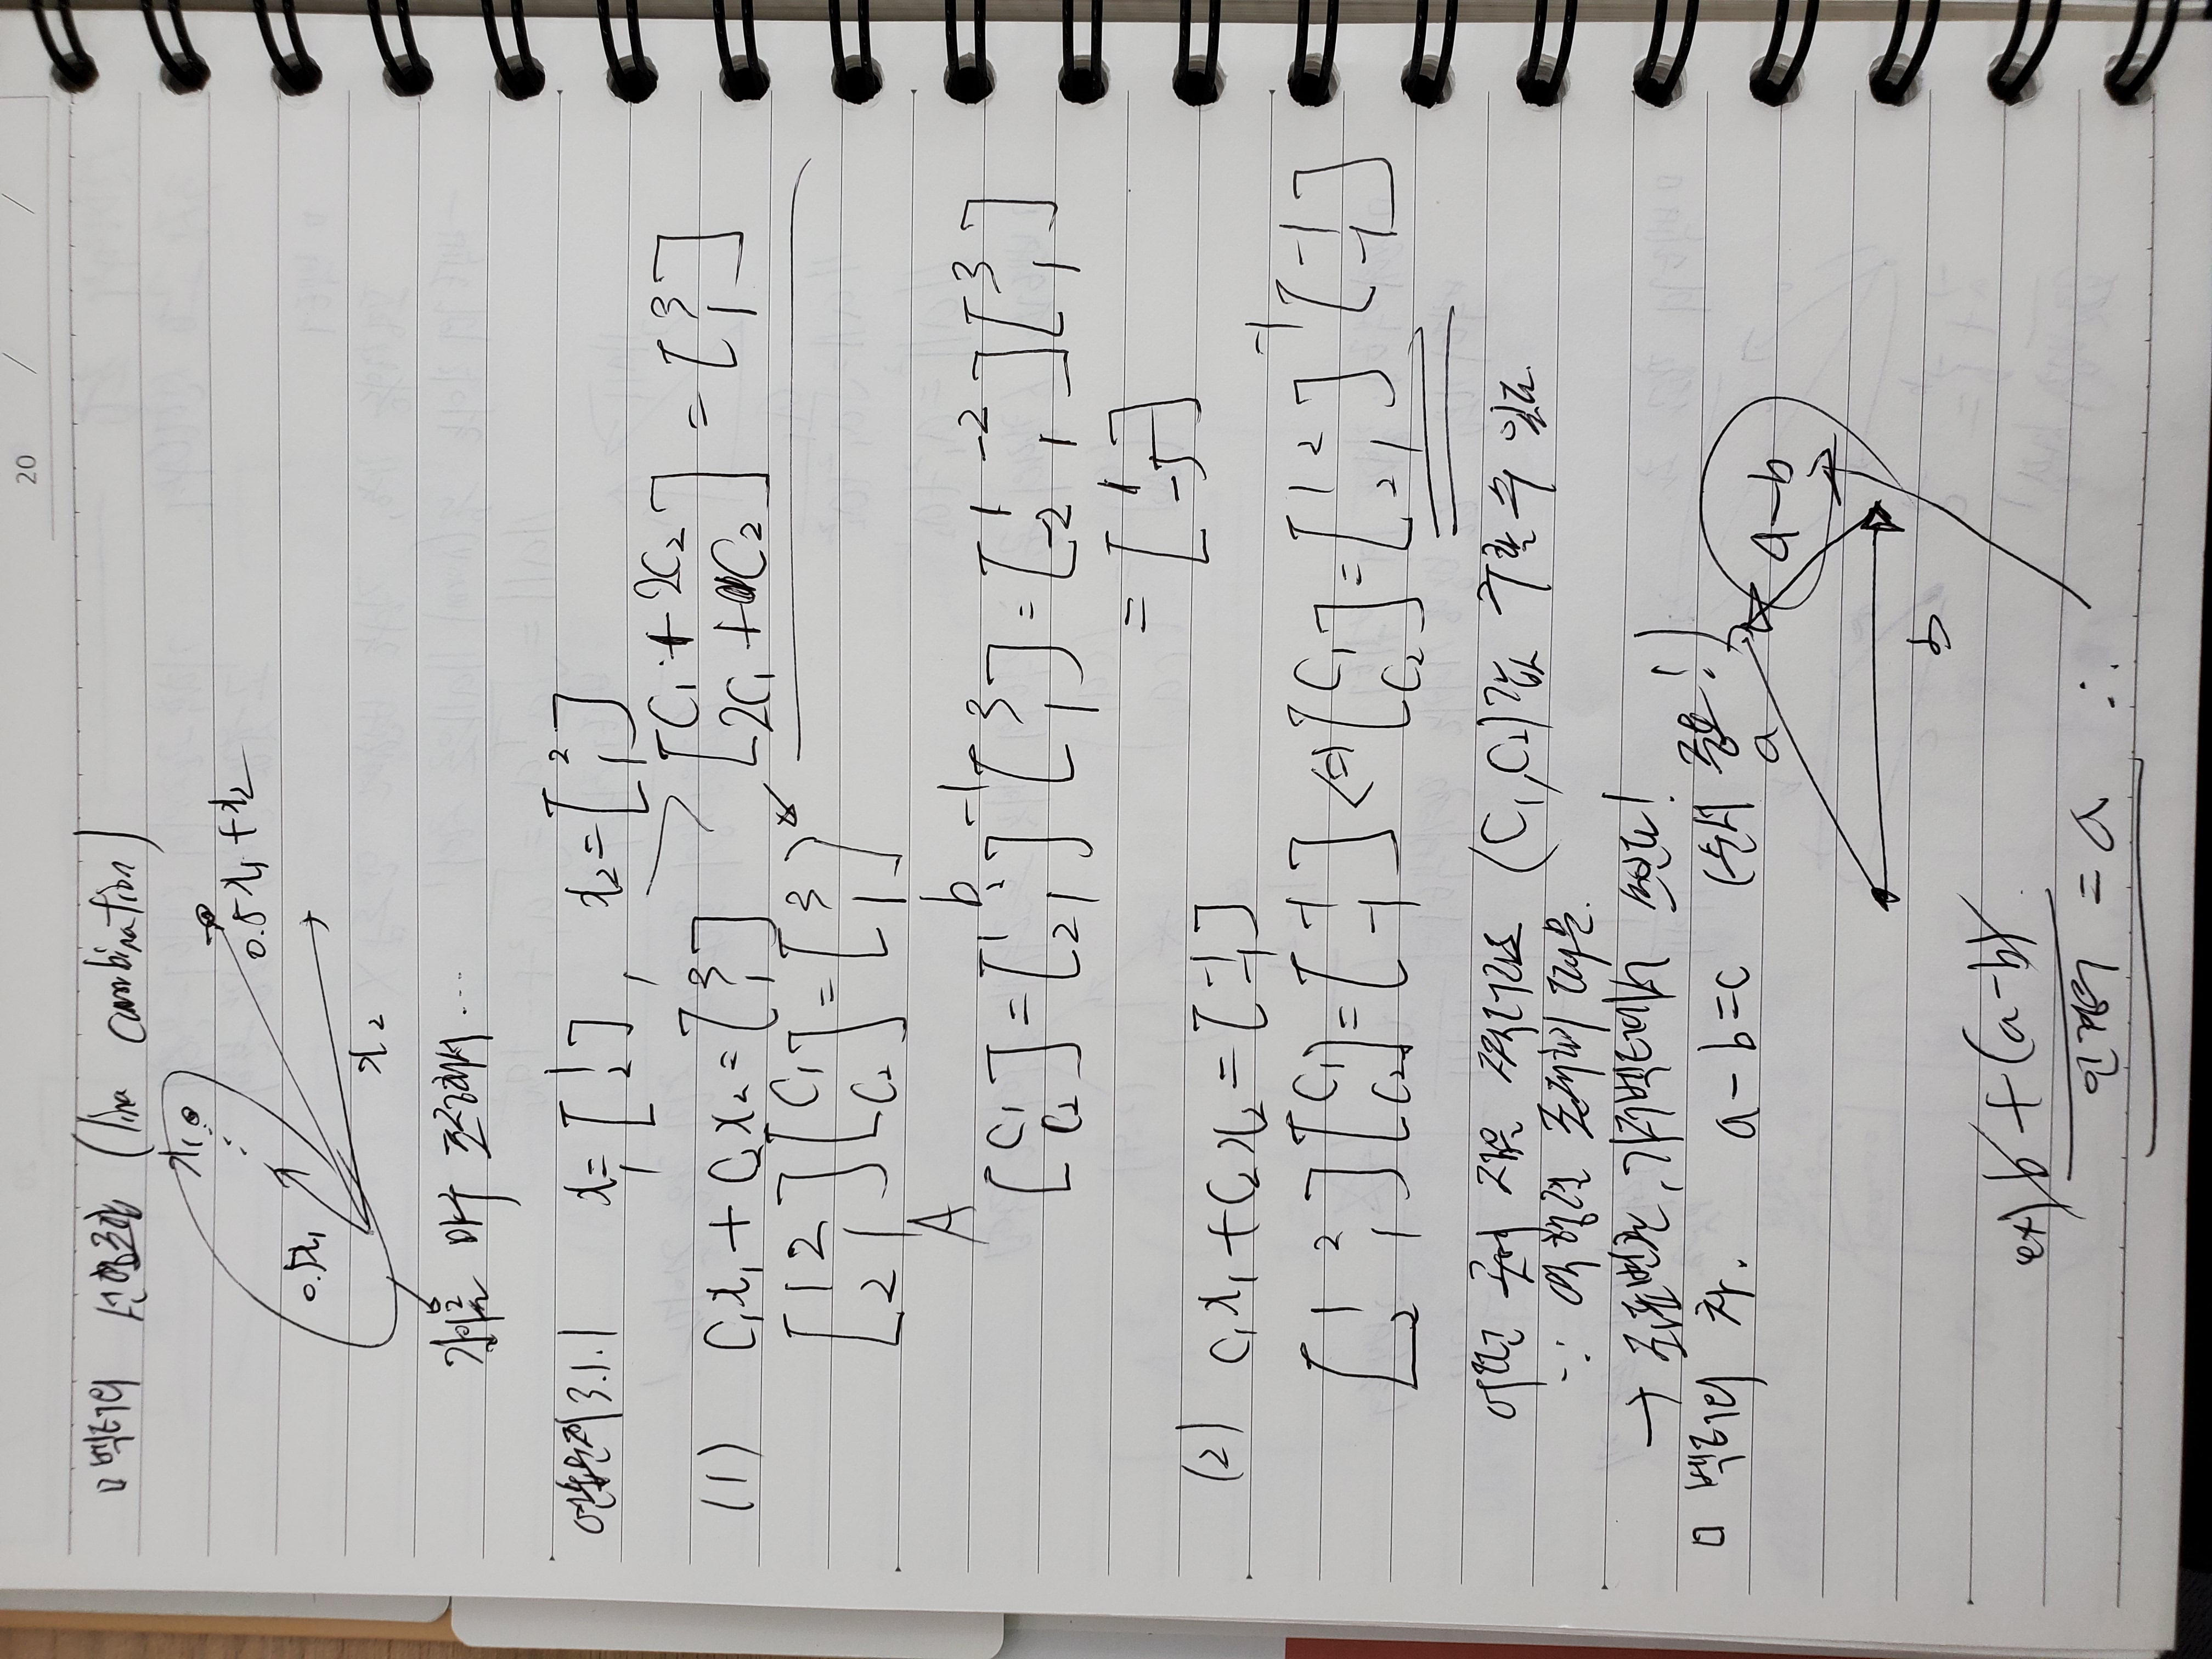 20 / /
□ 벡터의 선형조합 (line combination)
x₁
0.5x₁ + x₂
0.5x₁
x₂
길이를 마수 조정해서 ...
연습문제 3.1.1 x₁ = [1 2], x₂ = [2 1]
(1) C₁x₁ + C₂x₂ = [3 1] > [C₁ + 2C₂ 2C₁ + C₂] = [3 1]
[1 2 2 1] [C₁ C₂] = [3 1]
A b
[C₁ C₂] = [1 2 2 1]⁻¹ [3 1] = [1 -2 -2 1] [3 1]
= [1 -5]
(2) C₁x₁ + C₂x₂ = [-1 -1]
[1 2 2 1] [C₁ C₂] = [-1 -1] ⇔ [C₁ C₂] = [1 2 2 1]⁻¹ [-1 -1]
어떤 곳에 점을 찍더라도 (C₁, C₂)값 구할 수 있다.
∵ 역행렬 존재하기 때문.
→ 좌표변환, 기저벡터에서 쓰인다!
□ 벡터의 차. a - b = c (순서 중요!)
a
a - b
b
ex) b + (a - b)
= a ∴